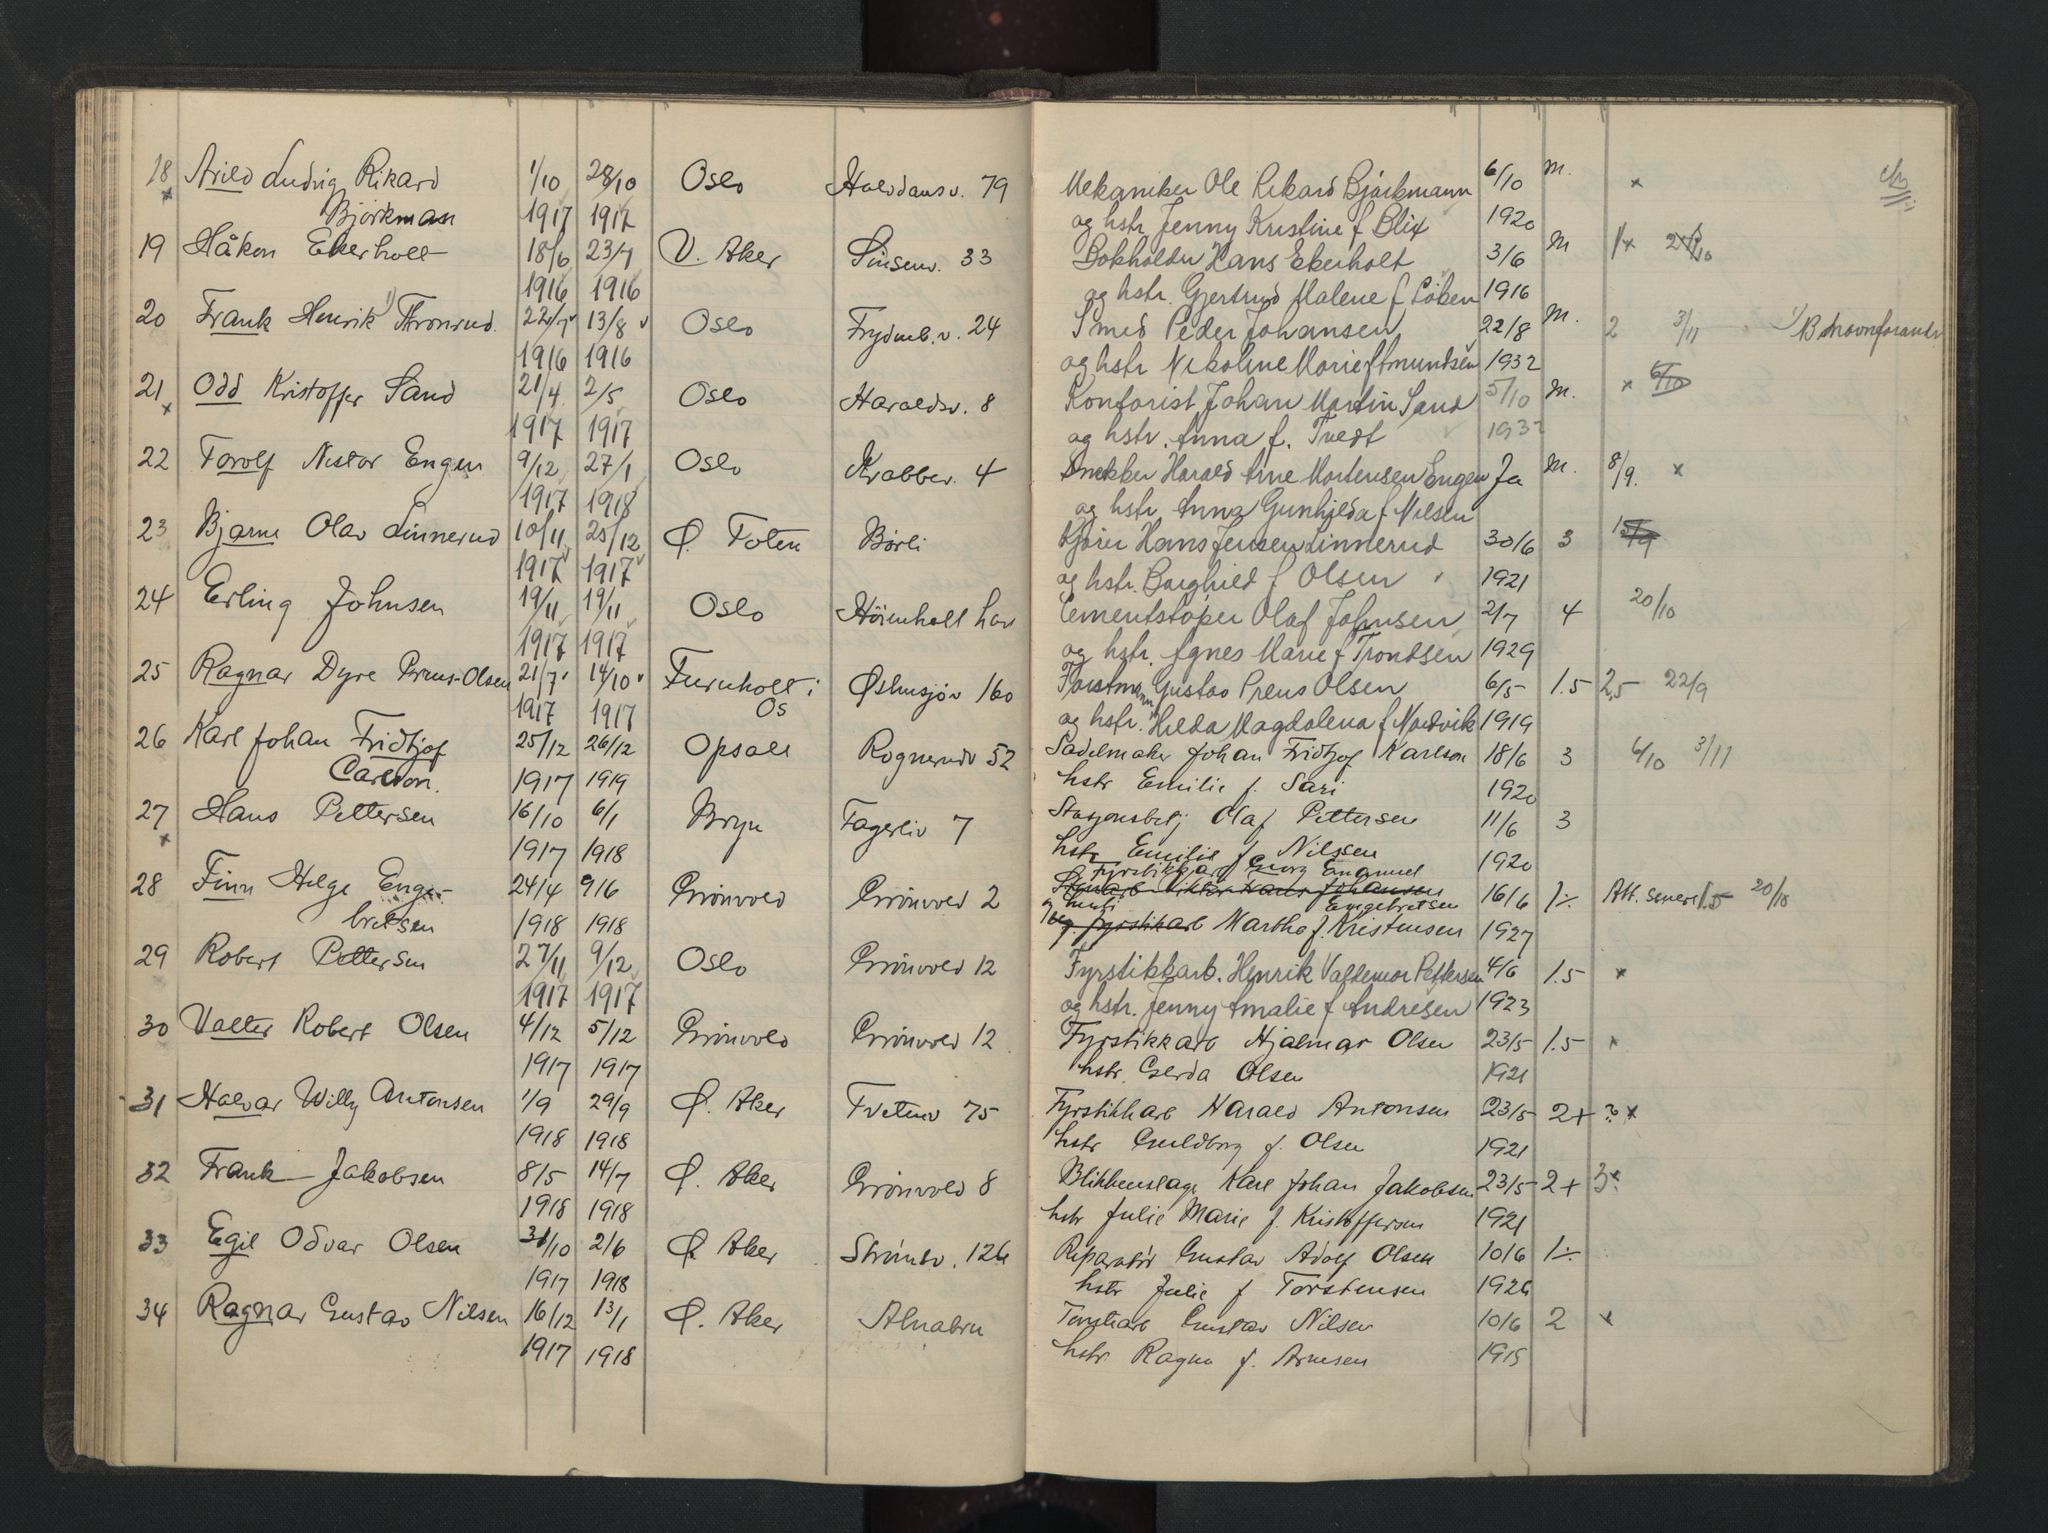 18 Arild Ludvig Rikard 1/10 28/10 Oslo Haldansv. 79 Mekaniker Ole Rikard Bjørkmann 6/10 M. x
x Bjørkman 1917 1917 og hstr Jenny Kristine f Blix 1920
19 Håkon Ekerholt 18/6 23/7 V. Aker Sinsenv. 33 Bokholder Hans Ekerholt 3/6 M
1916 1916 og hstr. Gjertrud Malene f Løken 1916
20 Frank Henrik 1) Thronrud. 22/7 13/8 Oslo Frydenb.v. 24 Smed Peder Johansen 22/8 M. 2 3/11 1) B navneforandr
1916 1916 og hstr Nikoline Marie Amundsen 1932
21 Odd Kristoffer Sand 21/4 2/5 Oslo Haraldsv. 8 Kontorist Johan Martin Sand 5/10 M. x 6/10
x 1917 1917 og hstr. Anna f. Tvedt 1932
22 Torolf Nestor Engen 9/12 27/1 Oslo Krabbev. 4 Snekker Harald Arne Mortensen Engen Ja M. 8/9. x
1917 1918 og hstr. Anna Gunhilda f Nilsen
23 Bjarne Olav Linnerud 10/11 25/12 Ø. Toten Børli Kjører Hans Jensen Linnerud 30/6 3
1917 1917 og hstr. Borghild f Olsen 1921
24 Erling Johnsen 19/11 19/11 Oslo Cementstøper Olaf Johnsen 2/7 4 20/10
1917 1917 og hstr. Agnes Marie f Trondsen 1929
25 Ragnar Dyre Preus-Olsen 21/7 14/10 Furuholt i Østmsjøv 160 Forstmann Gustav Preus Olsen 6/5 1.5 2,5 22/9
1917 1917 Os og hstr. Hilda Magdalena f Nordvik 1919
26 Karl Johan Fridtjof 25/12 26/12 Opsal Rognerudv 52 Sadelmaker Johan Fridtjof Karlson 18/6 3 6/10 3/11
Carlson. 1917 1919 hstr Emilie f. Sari 1920
27 Hans Pettersen 16/10 6/1 Bryn Fagerliv 7 Stasjonsbetj Olaf Pettersen 11/6 3
x 1917 1918 hstr Emilie f Nilssen 1920
28 Finn Helge Enge- 24/4 9/6 Grønvold Grønvold 2 Fyrstikkarb Georg Emanuel Engebretsen 16/6 1÷ Att. senere 1.5 20/10
bretsen 1918 1918 Martha f. Kristensen 1927
29 Robert Pettersen 27/11 9/12 Oslo Grønvold 12 Fyrstikkarb. Henrik Valdemar Pettersen 4/6 1.5 x
1917 1917 og hstr. Jenny Amalie f Andresen 1923
30 Valter Robert Olsen 4/12 5/12 Grønvold Grønvold 12 Fyrstikkarb Hjalmar Olsen 23/5 1.5 x
1917 1917 hstr. Gerda Olsen 1921
31 Halvar Willy Antonsen 1/9 29/9 Ø. Aker Tvetenv 75 Fyrstikkarb Harald Antonsen 23/5 2+ ? x
1918 1918 hstr Guldborg f. Olsen 1921
32 Frank Jakobsen 8/5 14/7 Ø. Aker Grønvold 8 Blikkenslager Karl Johan Jakobsen 23/5 2+ 3
1918 1918 hstr Julie Marie f. Kristoffersen 1921
33 Egil Odvar Olsen 31/10 2/6 Ø. Aker Strømsv. 126 Reparatør Gustav Adolf Olsen 10/6 1÷
1917 1918 hstr Julie f Torstensen 1926
34 Ragnar Gustav Nilsen 16/12 13/1 Ø. Aker Alnabru Gustav Nilsen 10/6 2 x
1917 1918 hstr. Ragna f. Arnesen 1919